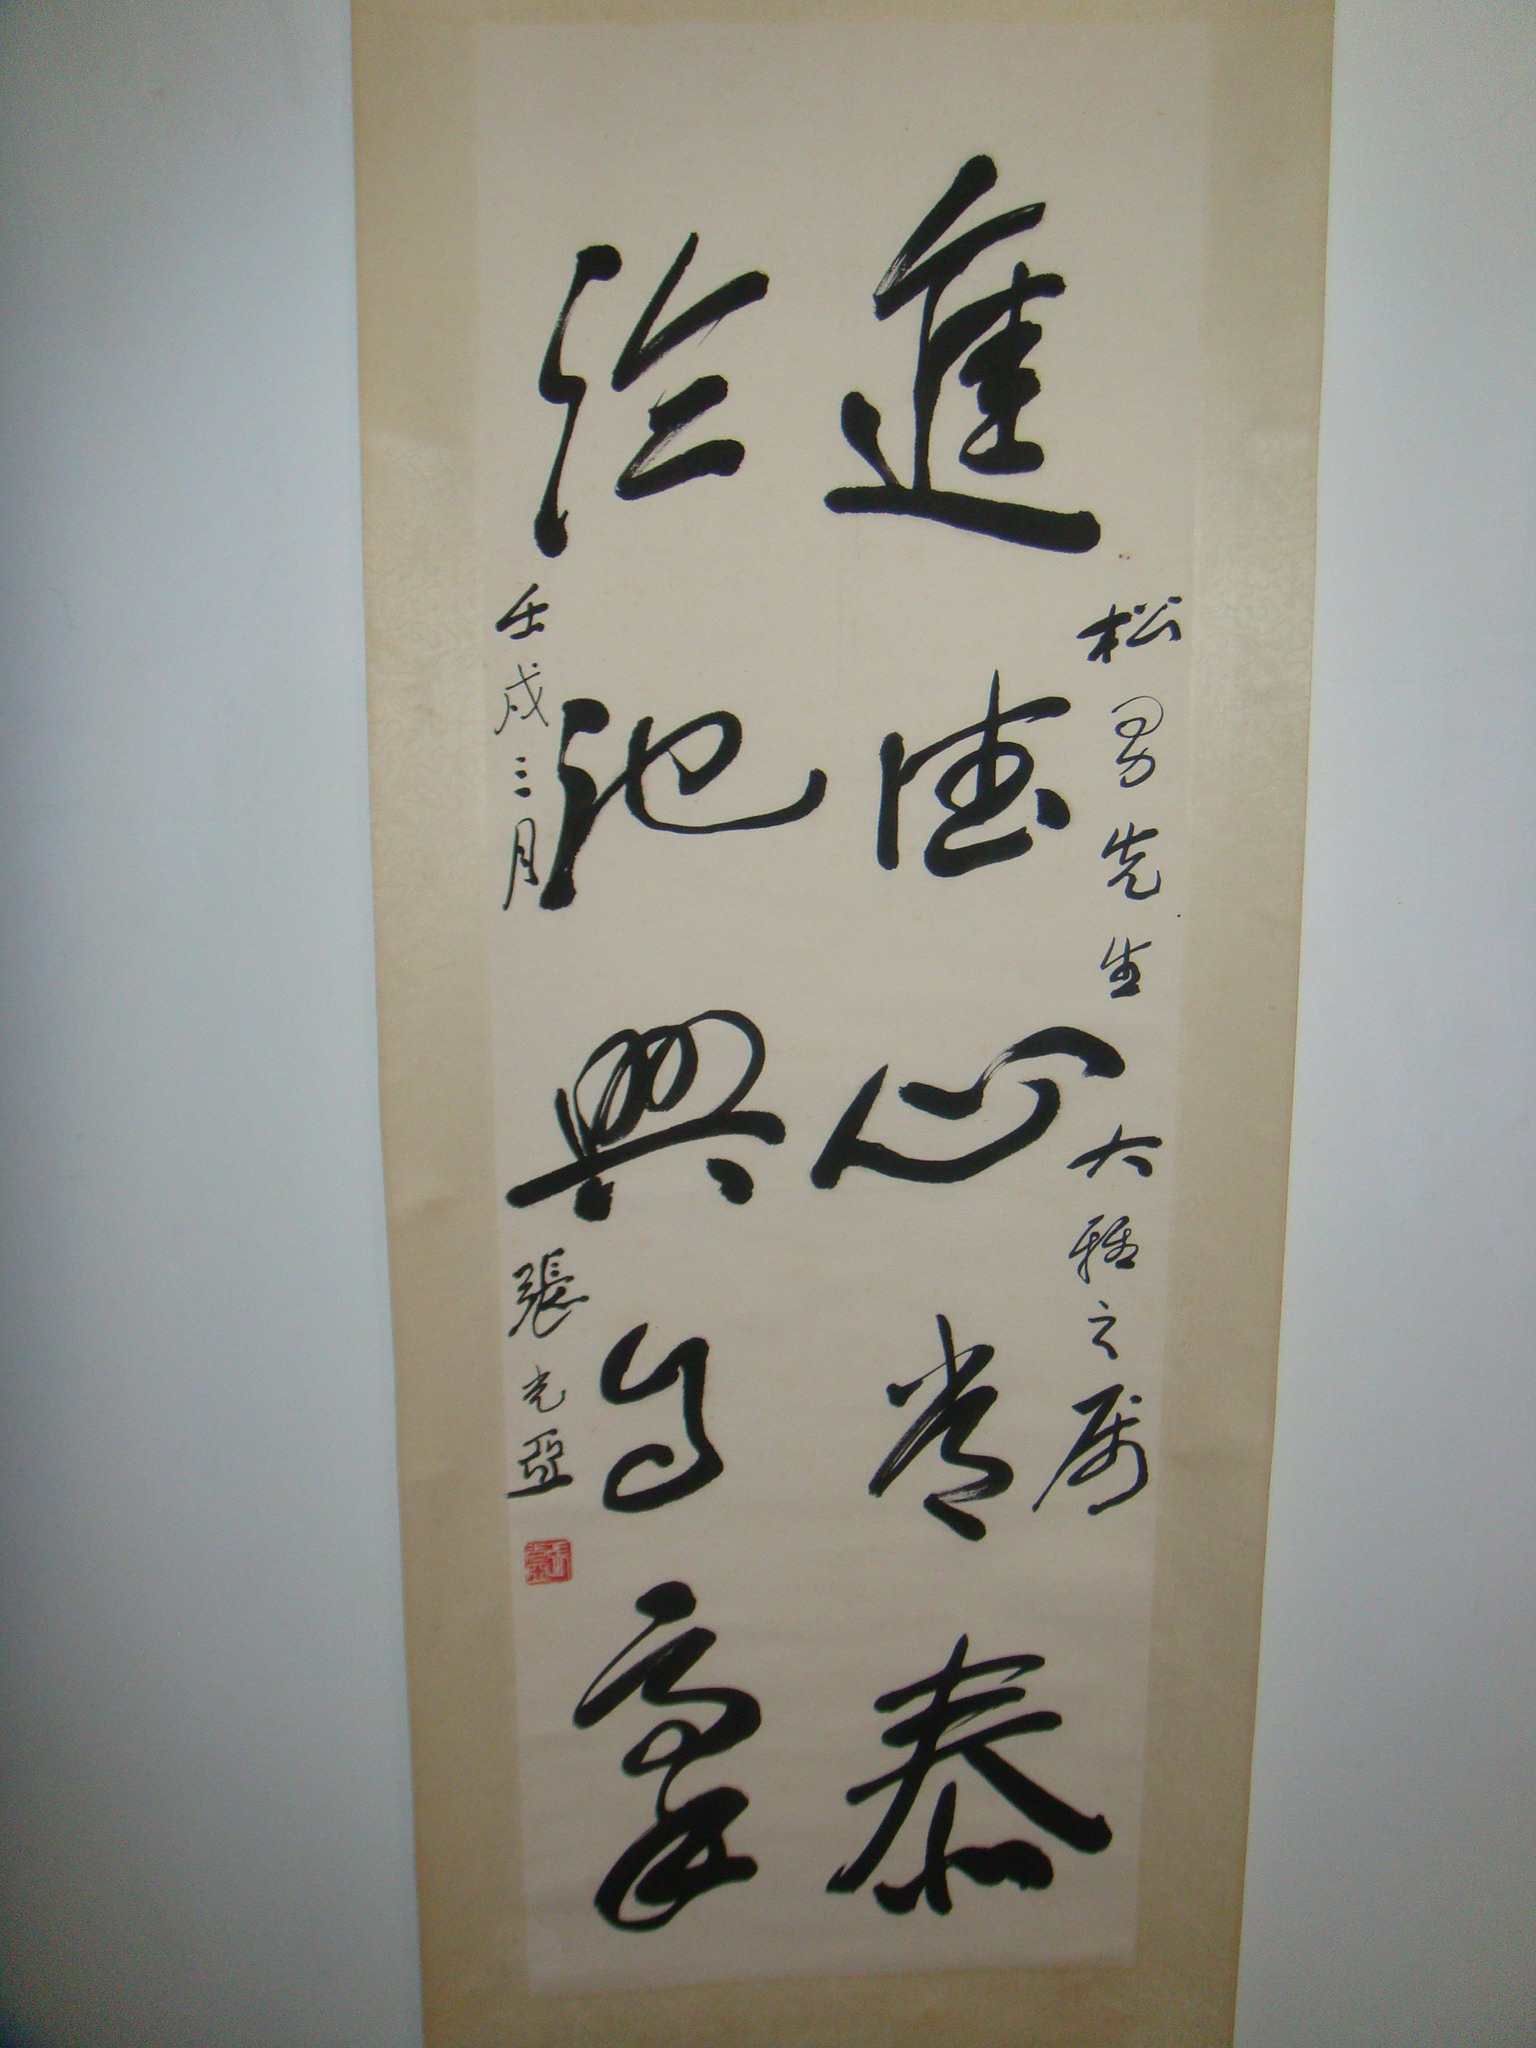 松男先生大雅之属
進德心常泰
临池興自高
壬戌三月 張光亞